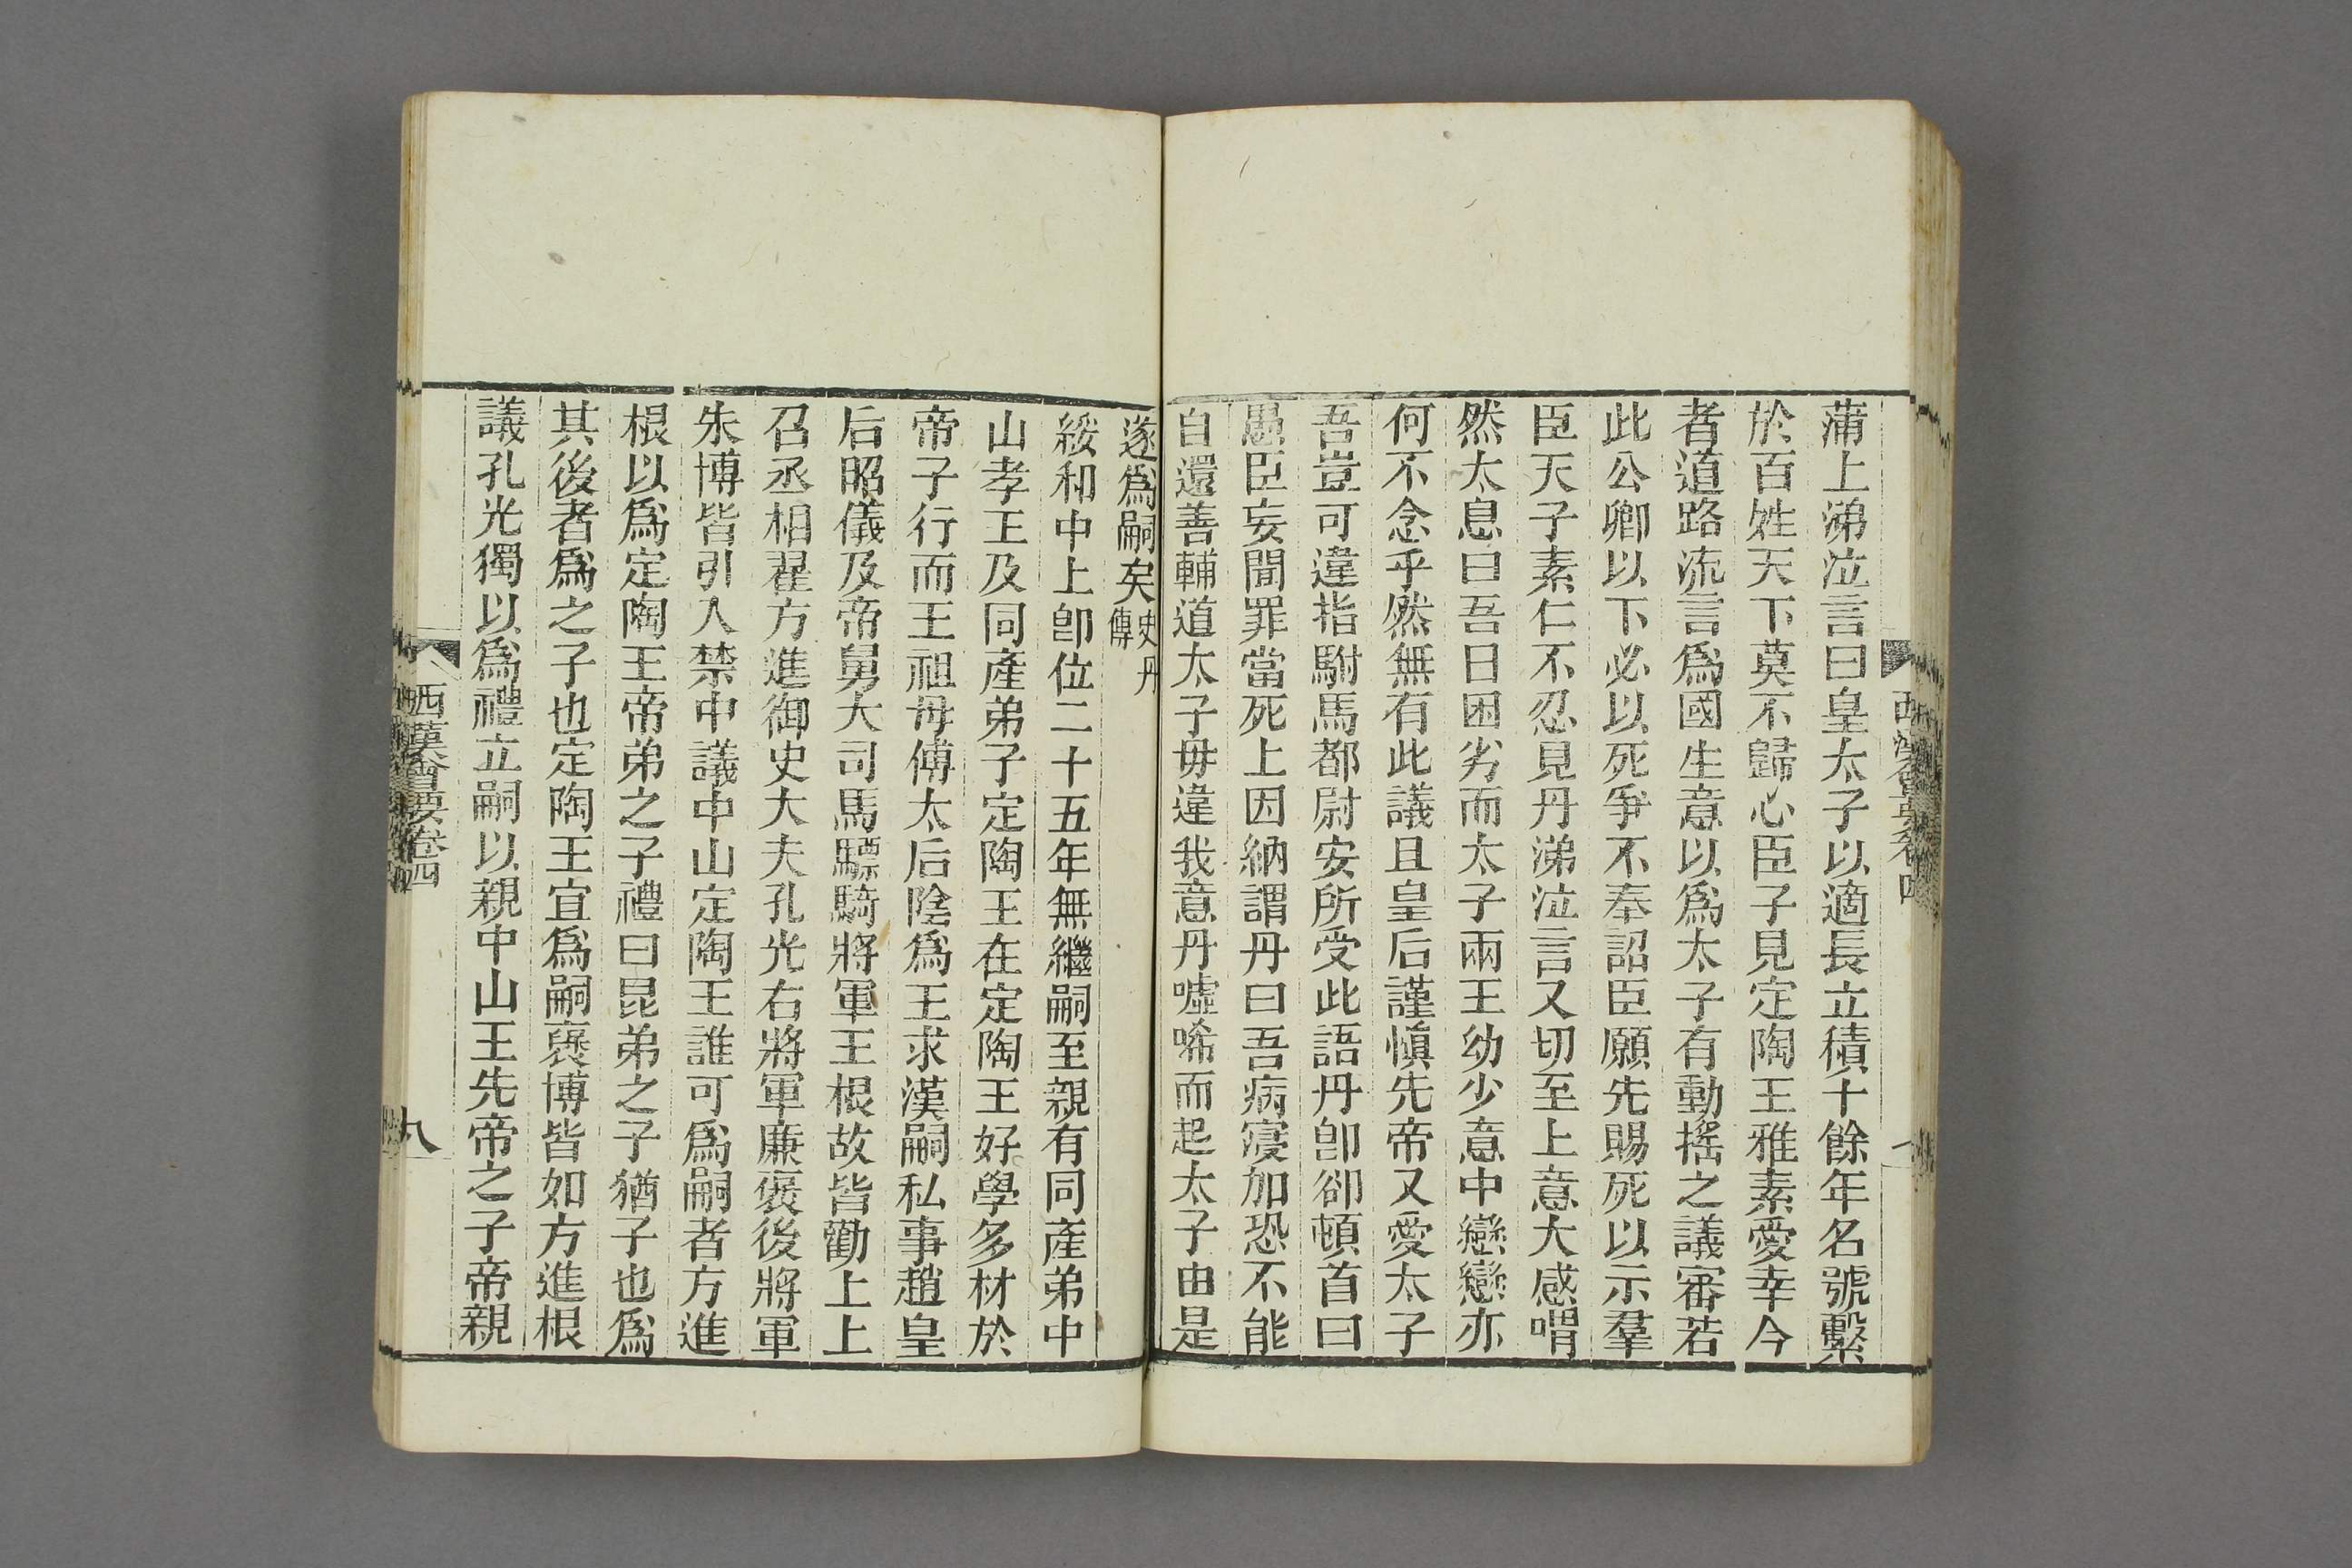 蒲上涕泣言曰皇太子以適長立積十餘年名號繫
於百姓天下莫不歸心臣子見定陶王雅素愛幸今
者道路流言爲國生意以爲太子有動搖之議審若
此公卿以下必以死爭不奉詔臣願先賜死以示羣
臣天子素仁不忍見丹涕泣言又切至上意大感喟
然太息曰吾日困劣而太子兩王幼少意中戀戀亦
何不念乎然無有此議且皇后謹愼先帝又愛太子
吾豈可違指駙馬都尉安所受此語丹卽卻頓首曰
愚臣妄聞罪當死上因納謂丹曰吾病寖加恐不能
自還善輔道太子毋違我意丹噓唏而起太子由是
遂爲嗣矣史丹傳
綏和中上卽位二十五年無繼嗣至親有同產弟中
山孝王及同產弟子定陶王在定陶王好學多材於
帝子行而王祖母傅太后陰爲王求漢嗣私事趙皇
后昭儀及帝舅大司馬驃騎將軍王根故皆勸上上
召丞相翟方進御史大夫孔光右將軍廉褒後將軍
朱博皆引入禁中議中山定陶王誰可爲嗣者方進
根以爲定陶王帝弟之子禮曰昆弟之子猶子也爲
其後者爲之子也定陶王宜爲嗣褒博皆如方進根
議孔光獨以爲禮立嗣以親中山王先帝之子帝親
西漢會要卷四
八